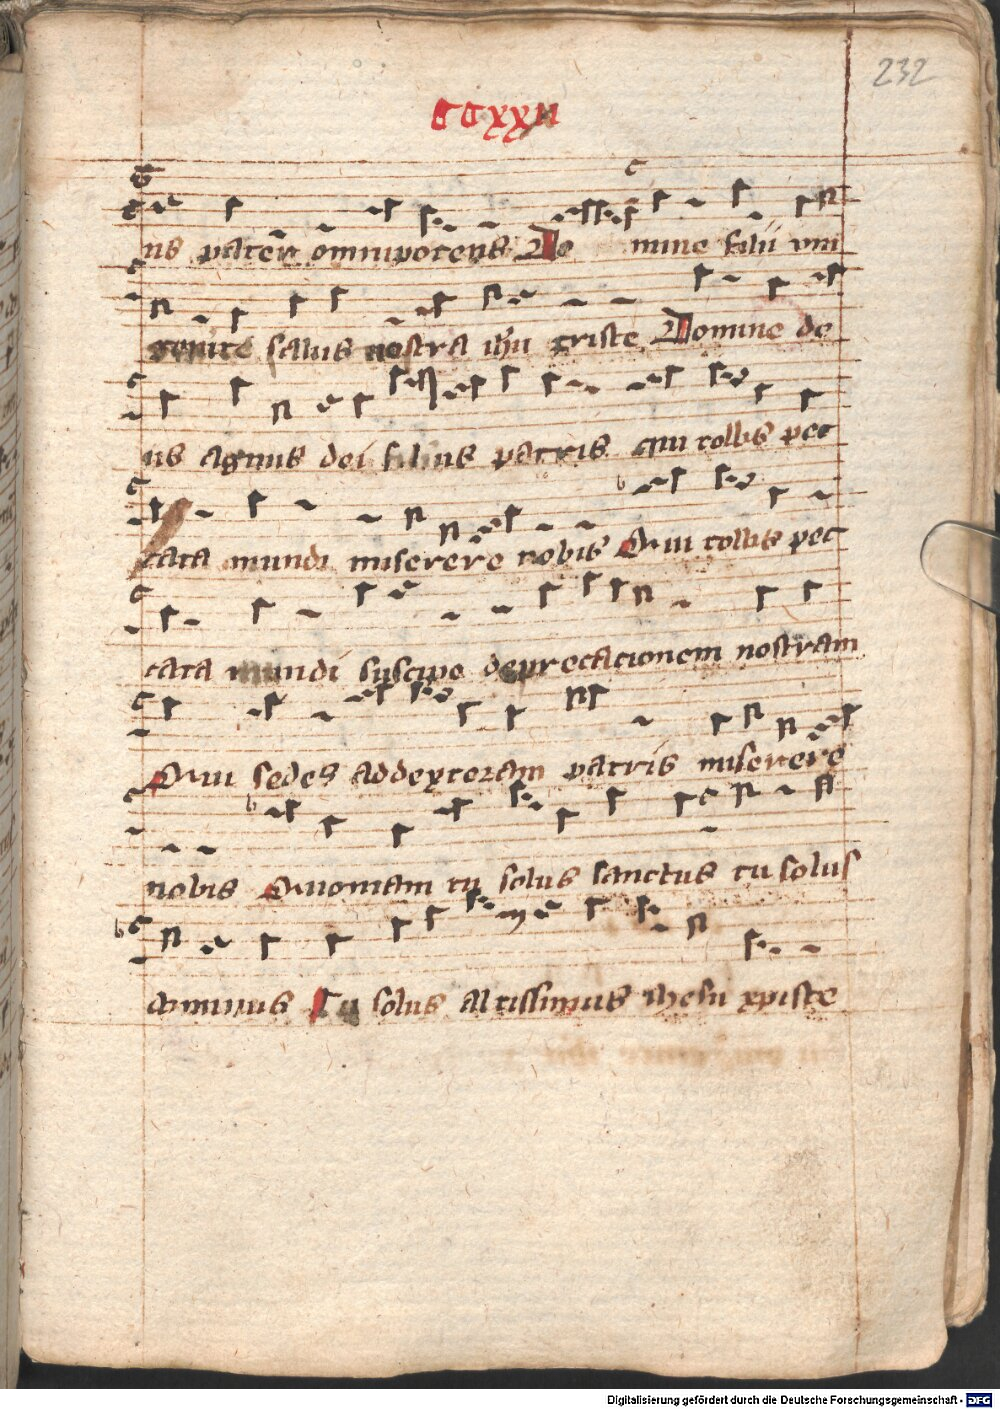 232
CCXXII
us pater omnipotens Do mine filii vni
genite salus nostra ihu xriste Domine de
us agnus dei filius patris qui tollis pec
cata mundi miserere nobis Qui tollis pec
cata mundi suscipe deprecacionem nostram
Qui sedes ad dexteram patris miserere
nobis Quoniam tu solus sanctus tu solus
dominus Tu solus altissimus ihesu xpiste
Digitalisierung gefördert durch die Deutsche Forschungsgemeinschaft - DFG